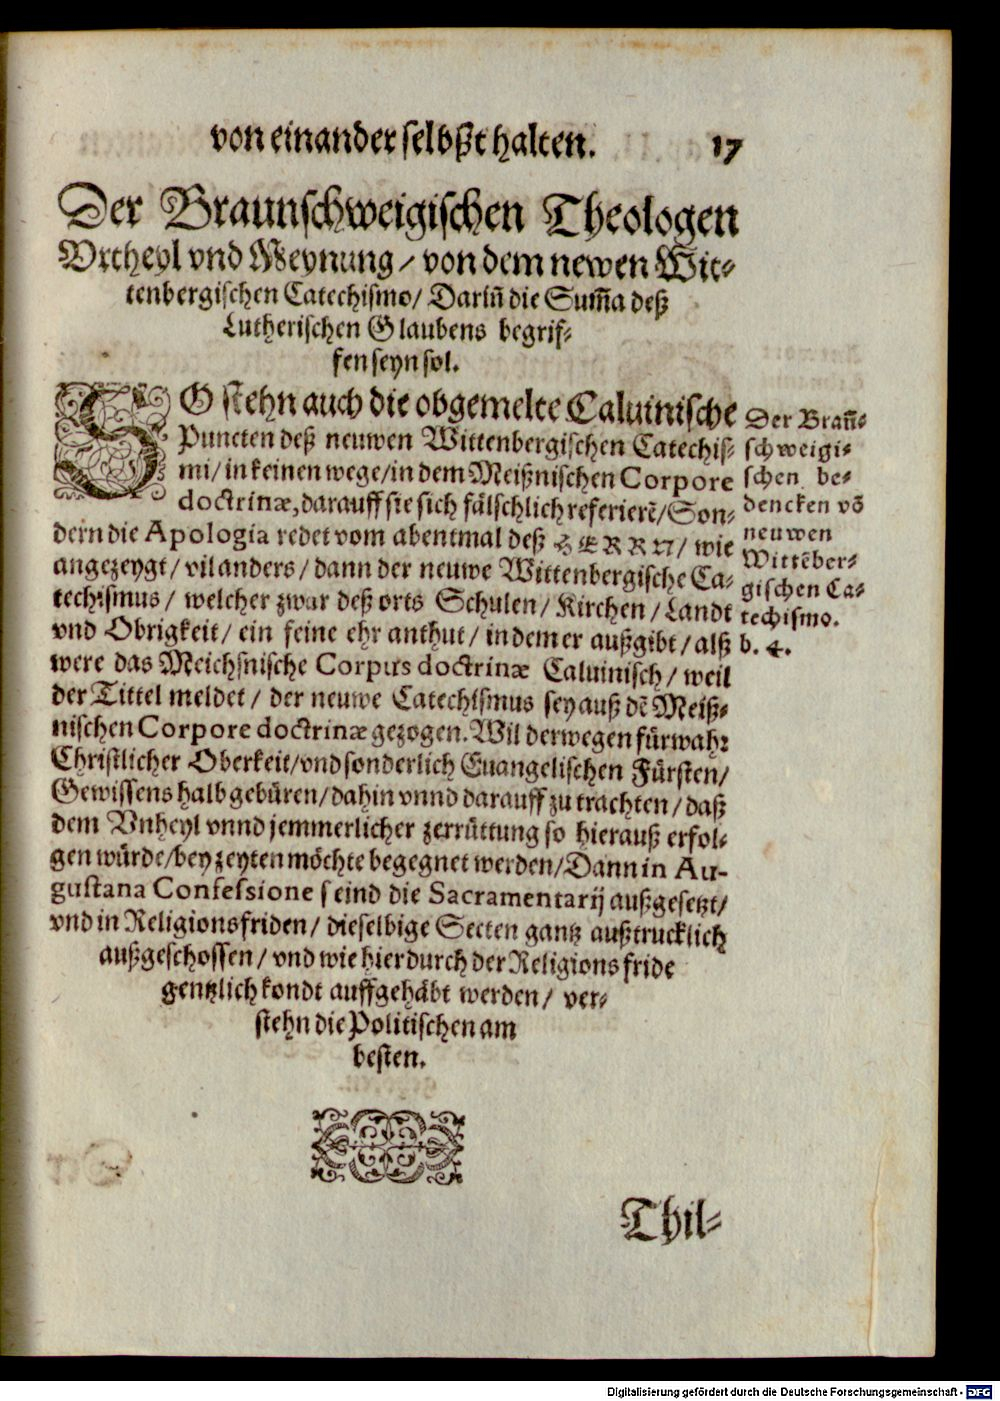 von einander selbßt halten. 17
Der Braunschweigischen Theologen
Vrtheyl vnd Meynung / von dem newen Wit-
tenbergischen Catechismo / Dariñ die Sum̃a deß
Lutherischen Glaubens begrif-
fen seyn sol.
SO stehn auch die obgemelte Caluinische
Puncten deß neuwen Wittenbergischen Catechis-
mi / in keinen wege / in dem Meißnischen Corpore
doctrinæ, darauff sie sich fälschlich referierẽ / Son-
dern die Apologia redet vom abentmal deß HERRN / wie
angezeygt / vil anders / dann der neuwe Wittenbergische Ca-
techismus / welcher zwar deß orts Schulen / Kirchen / Landt
vnd Obrigkeit / ein feine ehr anthut / in dem er außgibt / alß
were das Meichsnische Corpus doctrinæ Caluinisch / weil
der Tittel meldet / der neuwe Catechismus sey auß dẽ Meiß-
nischen Corpore doctrinæ gezogen. Wil derwegen fürwahr
Christlicher Oberkeit / vnd sonderlich Euangelischen Fürsten /
Gewissens halb gebüren / dahin vnnd darauff zu trachten / daß
dem Vnheyl vnnd jemmerlicher zerrüttung so hierauß erfol-
gen würde / bey zeyten möchte begegnet werden / Dann in Au-
gustana Confessione seind die Sacramentarij außgesetzt /
vnd in Religionsfriden / dieselbige Secten gantz außtrucklich
außgeschossen / vnd wie hierdurch der Religions fride
gentzlich kondt auffgehäbt werden / ver-
stehn die Politischen am
besten.
Der Brauñ-
schweigi-
schen be-
dencken võ
neuwen
Wittẽber-
gischen Ca-
techismo.
b. 4.
Thil-
Digitalisierung gefördert durch die Deutsche Forschungsgemeinschaft - DFG